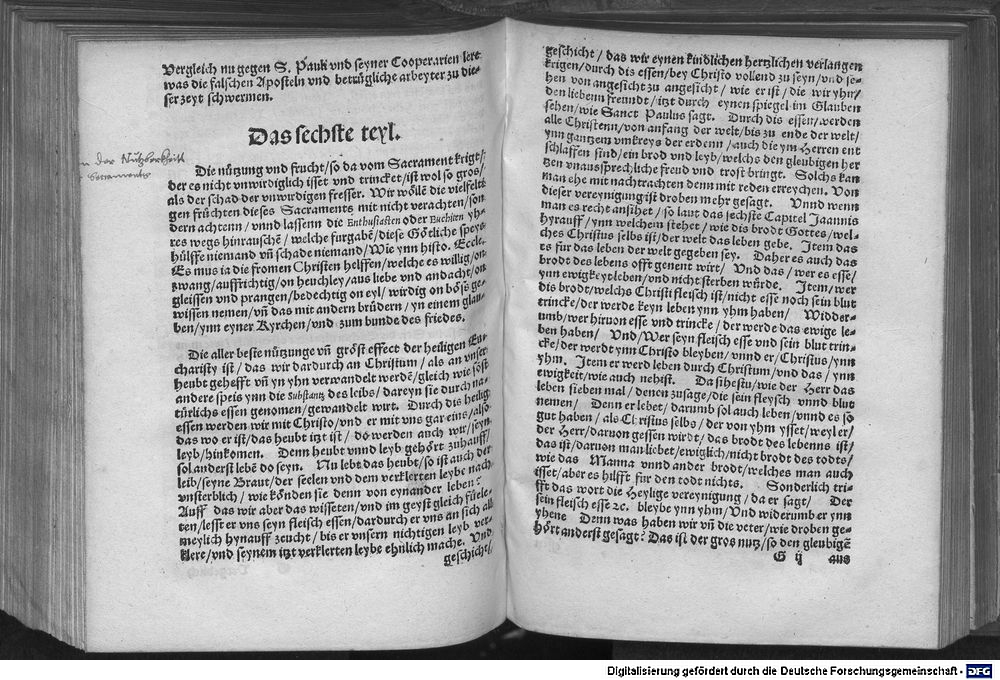 Vergleich nu gegen S. Pauli vnd seyner Cooperarien lere
was die falschen Aposteln vnd betrügliche arbeyter zu die-
ser zeyt schwermen.
Das sechste teyl.
Die nützung vnd frucht/so da vom Sacrament krigt/
der es nicht vnwirdiglich isset vnd trincket/ist wol so gros/
als der schad der vnwirdigen fresser. Wir wöllē die vielfelti
gen früchten dieses Sacraments mit nicht verachten/son
dern achtenn/vnnd lassenn die Enthusiasten oder Euchiten yh-
res wegs hinrauschē/welche furgabē/diese Götliche speys
hülffe niemand vñ schade niemand/Wie ynn histo. Eccle.
Es mus ia die fromen Christen helffen/welche es willig/on
zwang/auffrichtig/on heuchley/aus liebe vnd andacht/on
gleissen vnd prangen/bedechtig on eyl/wirdig on bōse ge-
wissen nemen/vñ das mit andern brüdern/yn einem glau-
ben/ynn eyner Kyrchen/vnd zum bunde des friedes.
Die aller beste nützunge vñ gröst effect der heiligen Eu-
charisty ist/das wir dardurch an Christum/als an vnser
heubt gehefft vñ yn yhn verwandelt werdē/gleich wie sōst
andere speis ynn die Substantz des leibs/dareyn sie durch na-
türlichs essen genomen/gewandelt wirt. Durch dis heilig
essen werden wir mit Christo/vnd er mit vns gar eins/also
das wo er ist/das heubt itzt ist/do werden auch wir/seyn
leyb/hinkomen. Denn heubt vnnd leyb gehört zuhauff/
sol anderst lebē do seyn. Nu lebt das heubt/so ist auch der
leib/seyne Braut/der seelen vnd dem verklerten leybe nach
vnsterblich/wie könden sie denn von eynander leben?
Auff das wir aber das wisseten/vnd im geyst gleich füele-
ten/lesst er vns seyn fleisch essen/dardurch er vns an sich all
meylich hynauff zeucht/bis er vnsern nichtigen leyb ver-
klere/vnd seynem itzt verklerten leybe ehnlich mache. Vnd
geschicht/
geschicht/das wir eynen kindlichen hertzlichen verlangen
krigen/durch dis essen/bey Christo vollend zu seyn/vnd se-
hen von angesicht zu angesicht/wie er ist/die wir yhn/
den liebenn freundt/itzt durch eynen spiegel im Glauben
sehen/wie Sanct Paulus sagt. Durch dis essen/werden
alle Christenn/von anfang der welt/bis zu ende der welt/
ynn gantzem vmkreys der erdenn/auch die ym Herren ent
schlaffen sind/ein brod vnd leyb/welchs den gleubigen her
tzen vnaussprechliche freud vnd trost bringt. Solchs kan
man ehe mit nachtrachten denn mit reden erreychen. Von
dieser vereynigung ist droben mehr gesagt. Vnnd wenn
man es recht ansihet/so laut das sechste Capitel Joannis
hyrauff/ynn welchem stehet/wie dis brodt Gottes/wel-
ches Christus selbs ist/der welt das leben gebe. Item das
es fur das leben der welt gegeben sey. Daher es auch das
brodt des lebens offt genent wirt/ Vnd das/wer es esse/
ynn ewigkeyt leben/vnd nicht sterben würde. Item/wer
dis brodt/welchs Christi fleisch ist/nicht esse noch sein blut
trincke/der werde keyn leben ynn yhm haben/ Widder-
umb/wer hiruon esse vnd trincke/der werde das ewige le-
ben haben/ Vnd/Wer seyn fleisch esse vnd sein blut trin-
cke/der werdt ynn Christo bleyben/vnnd er/Christus/ynn
yhm. Item er werd leben durch Christum/vnd das/ynn
ewigkeit/wie auch nehist. Da sihestu/wie der Herr das
leben sieben mal/denen zusage/die sein fleysch vnnd blut
nemen/ Denn er lebet/darumb sol auch leben/vnnd es so
gut haben/als Christus selbs/der von yhm ysset/weyl er/
der Herr/daruon gessen wirdt/das brodt des lebenns ist/
das ist/daruon man liebet/ewiglich/nicht brodt des todts/
wie das Manna vnnd ander brodt/welches man auch
isset/aber es hilfft für den todt nichts. Sonderlich tri-
fft das wort die Heylige vereynigung/da er sagt/ Der
sein fleisch esse ꝛc. bleybe ynn yhm/Vnd widerumb er ynn
yhene Denn was haben wir vñ die veter/wie droben ge-
hört anderst gesagt? Das ist der gros nutz/so den gleubigē
G ij aus
Digitalisierung gefördert durch die Deutsche Forschungsgemeinschaft - DFG